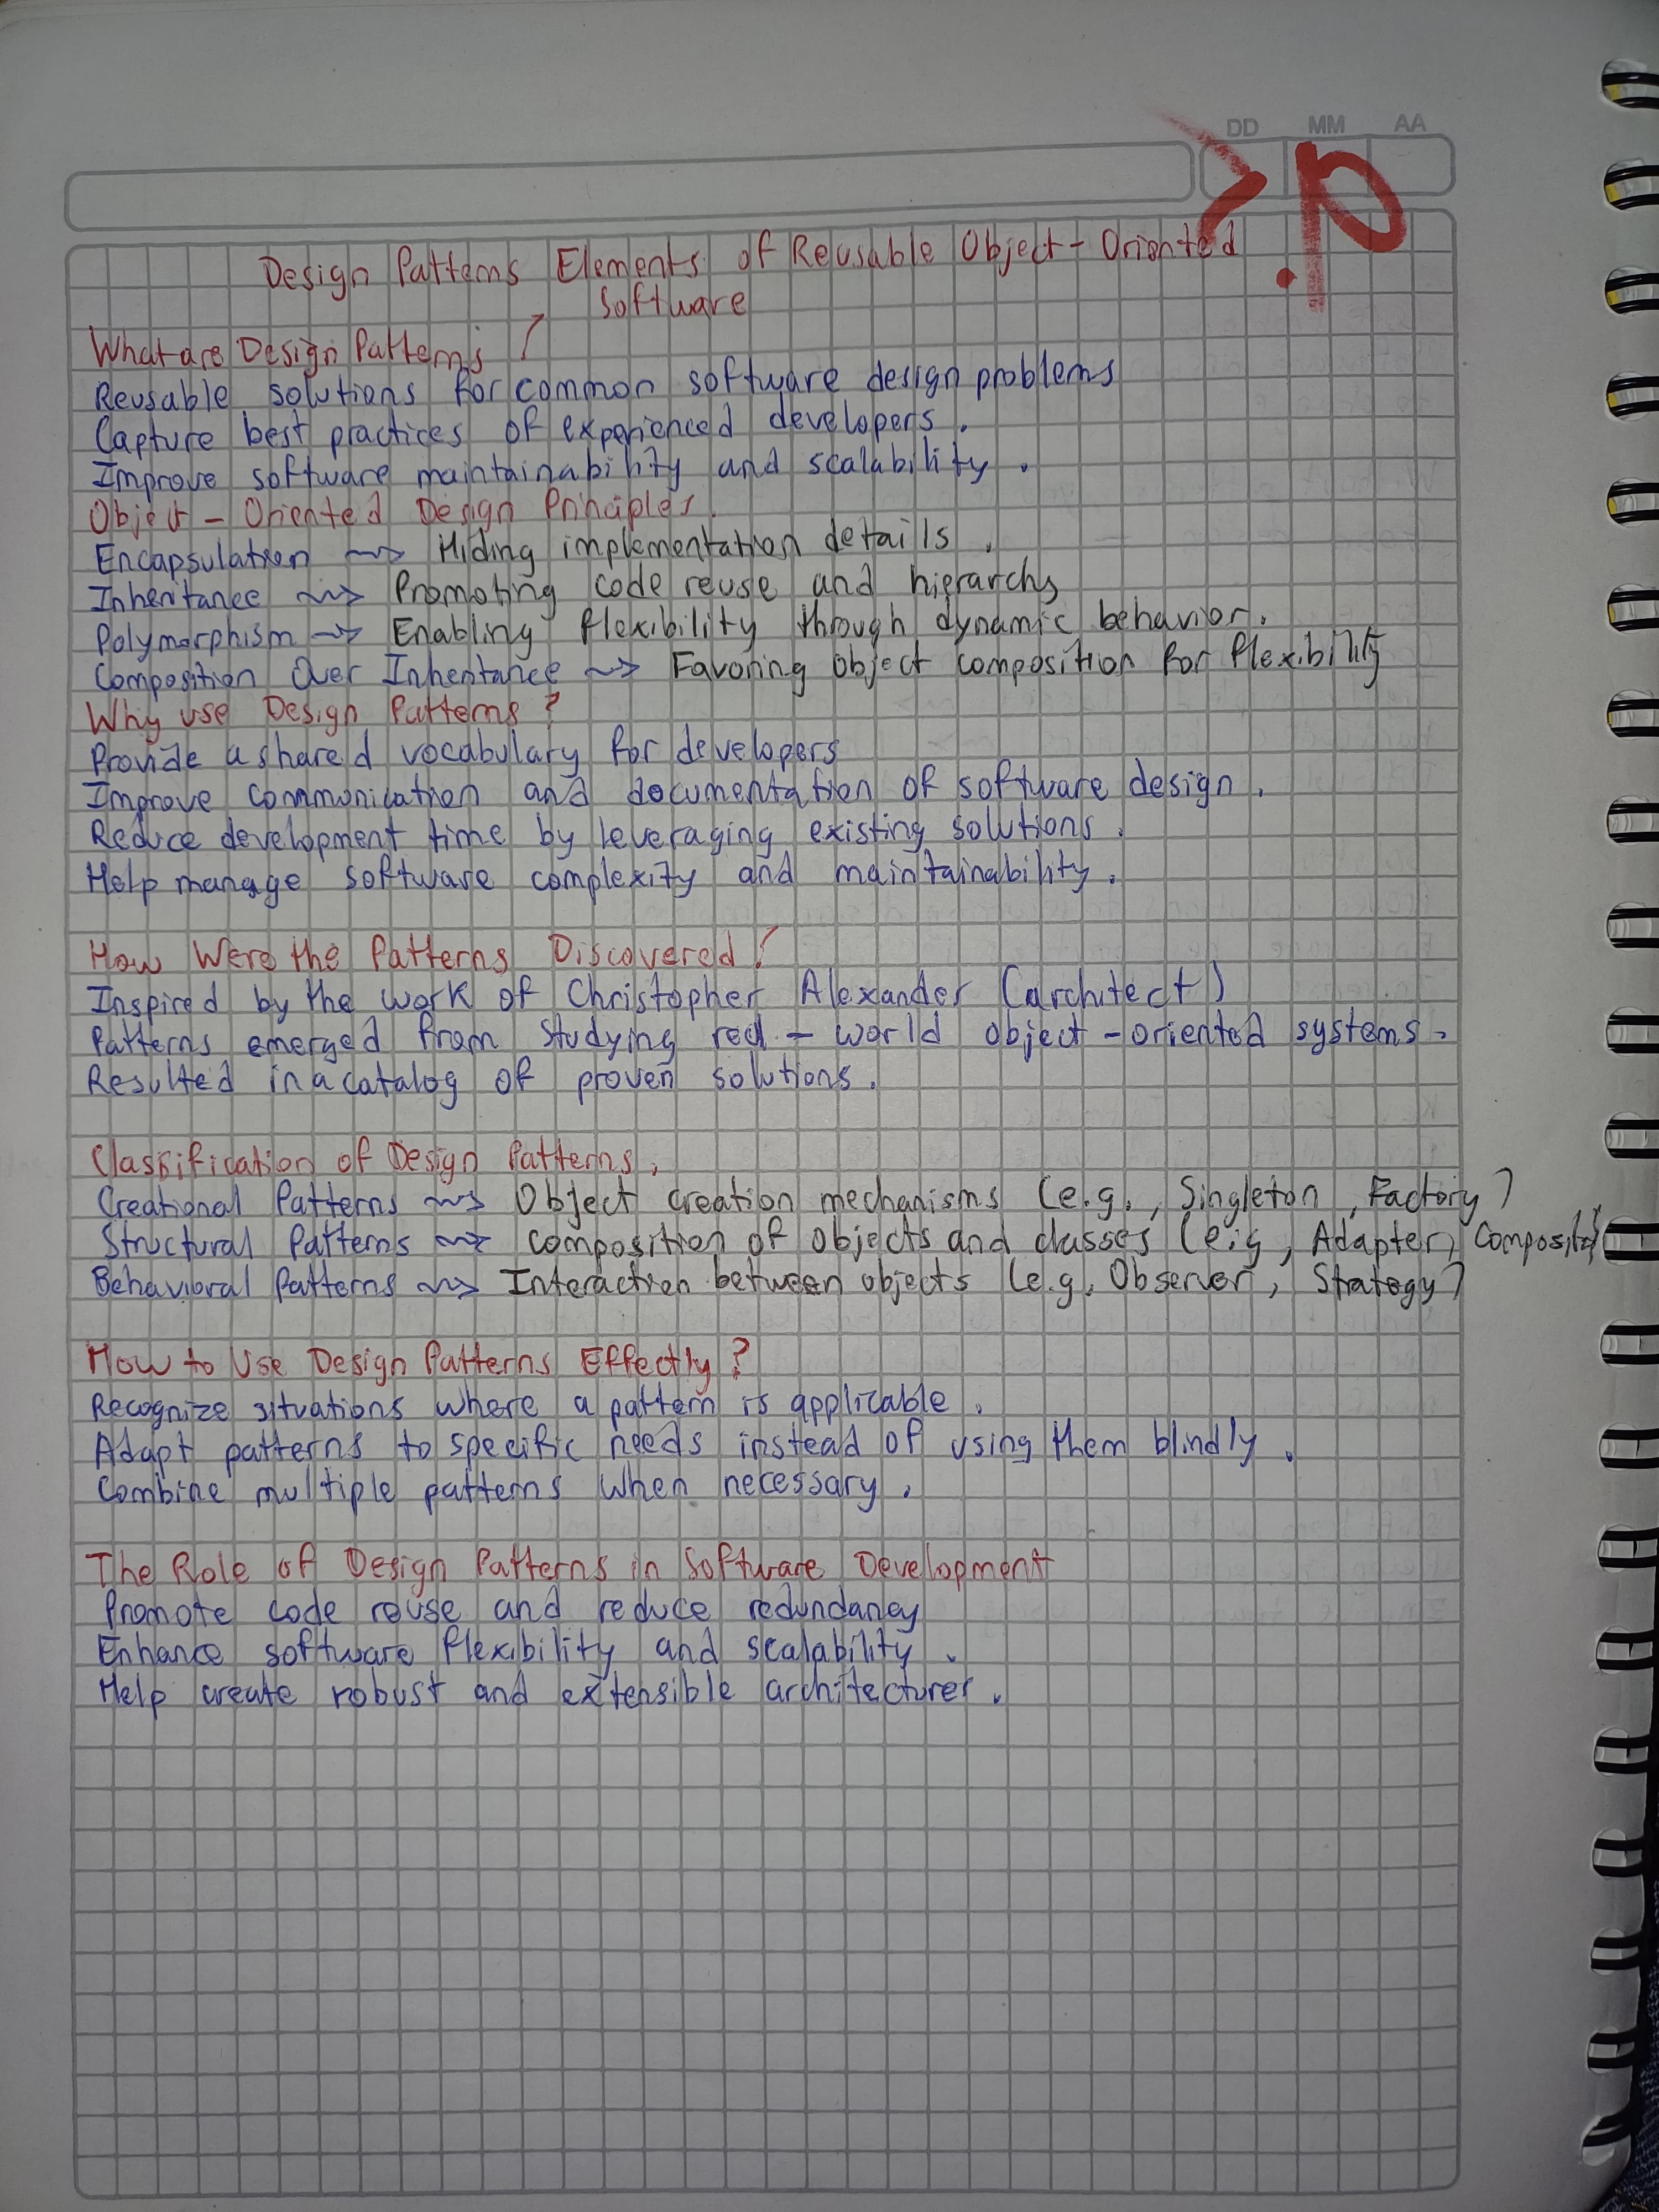 DD MM AA
Design Patterns Elements of Reusable Object - Oriented
Software
What are Design Patterns
Reusable solutions for common software design problems
Capture best practices of experienced developers.
Improve software maintainability and scalability.
Object - Oriented Design Principles.
Encapsulation ⇝ Hiding implementation details.
Inheritance ⇝ Promoting code reuse and hierarchy
Polymorphism ⇝ Enabling flexibility through dynamic behavior.
Composition Over Inheritance ⇝ Favoring object composition for flexibility
Why use Design Patterns?
Provide a shared vocabulary for developers
Improve communication and documentation of software design.
Reduce development time by leveraging existing solutions.
Help manage software complexity and maintainability.
How Were the Patterns Discovered?
Inspired by the work of Christopher Alexander (architect)
Patterns emerged from studying real - world object - oriented systems.
Resulted in a catalog of proven solutions.
Classification of Design Patterns.
Creational Patterns ⇝ Object creation mechanisms (e.g., Singleton, Factory)
Structural Patterns ⇝ Composition of objects and classes (e.g, Adapter, Composite)
Behavioral Patterns ⇝ Interaction between objects (e.g, Observer, Strategy)
How to Use Design Patterns Effectly?
Recognize situations where a pattern is applicable.
Adapt patterns to specific needs instead of using them blindly.
Combine multiple patterns when necessary.
The Role of Design Patterns in Software Development
Promote code reuse and reduce redundancy
Enhance software flexibility and scalability.
Help create robust and extensible architectures.